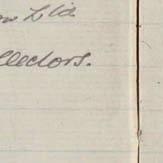 Ltd
llectors.